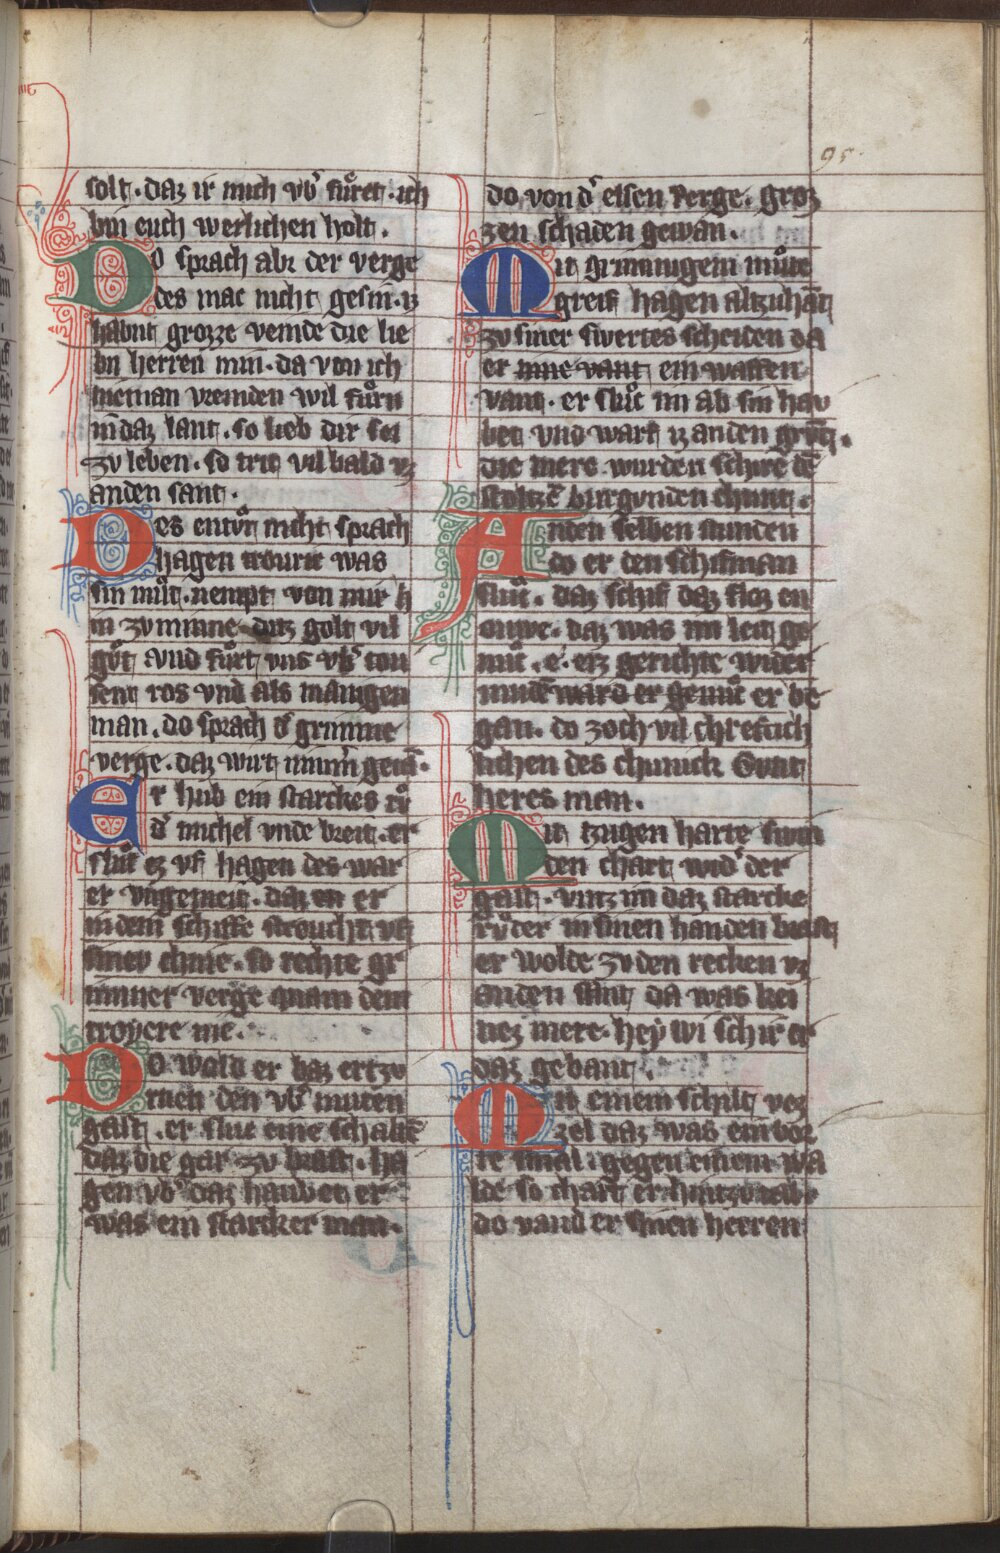 95
solt · daz ir mich vb᷒ fuͤret · ich
bin euch werlichen holt .
Do sprach abr der verge
des mac nicht gesin · iz
habnt grozze veinde die lie
bn herren min · da von ich
nieman vremden wil fuͤrn
in daz lant . so lieb dir sei
zv leben · so trit vil bald vz
an den sant .
Des entvͦn nicht sprach
hagen trouric was
sin muͦt . nempt von mir h
in zv minne ditz golt vil
guͦt vnd fuͤrt vns vb᷒ tou
sent ros vnd als manigen
man . do sprach d᷒ grimme
verge . daz wirt nimm᷒ getā .
Er hub ein starckes rvͦ
d᷒ michel vnde breit . er
sluͦc ez vf hagen des war
er vngemeit . daz en er
in dem schiffe strouchte vf
sinev chnie . so rechte gr
immer verge quam dem
troyere nie .
Do wold er baz ertzv
rnen den vb᷒ muten
gast . er sluc eine schalte
daz die gar zv brast . ha
gen vb᷒ daz haubet er
was ein starcker man .
do von d᷒ elsen verge . groz
zen schaden gewan .
Mit grimmigem muͦte
greif hagen altzuhāt
zv siner swertes scheiden da
er inne vant ein waffen
vant . er sluͦc im ab sin hav
bet vnd warf iz an den grvͦt .
die mere wurden schire dē
stoltzē burgvnden chunt .
An den selben stunden
do er den schifman
sluͦc . daz schif daz floz en
ouwe . daz was im leit ge
nuͦc . e . erz gerichte wider
mude ward er genuͦc er be
gan . do zoch vil chreftich
lichen des chunick Gunt
heres man .
Mit tzugen harte swin
den chart wid᷒ der
gast . vntz im daz starcke
rvͦder in sinen handen brast
er wolde zv den recken vz
an den sant da was kei
nez mere . hey wi schir er
daz gebant .
Mit einem schilt vez
zel daz was ein bor
te smal . gegen einem wa
lde so chart er hintz
do vand er sinen herren